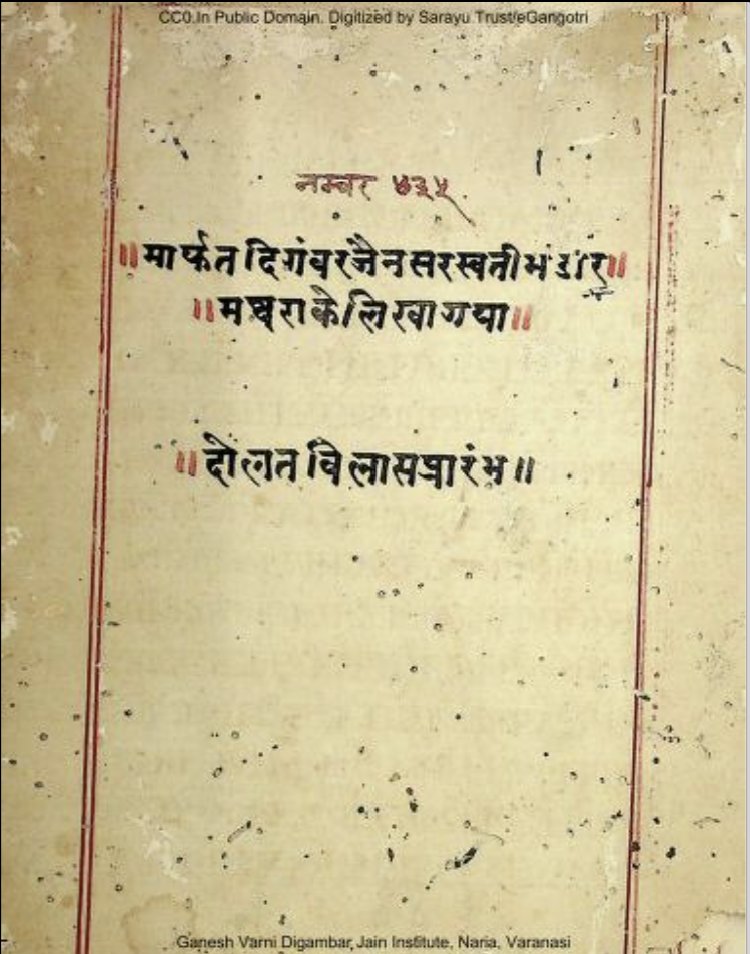 CC0.In Public Domain. Digitized by Sarayu Trust/eGangotri
नम्वर ७३५
॥मार्फत दिगंवर जैन सरस्वती भंडार॥
॥मथुरा के लिखा गया॥
॥दौलत विलास प्रारंभ॥
Ganesh Varni Digambar Jain Institute, Naria, Varanasi